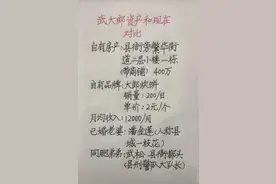 武大郎资产和现在
对比
自有房产：县衙旁繁华街
道二层小楼一栋
（带商铺）400万
自有品牌：大郎炊饼
销量：200/日
单价：2元/个
月均收入：12000/月
已婚老婆：潘金莲（人称县
城一枝花）
同胞弟弟：武松 县衙都头
（县刑警队大队长）